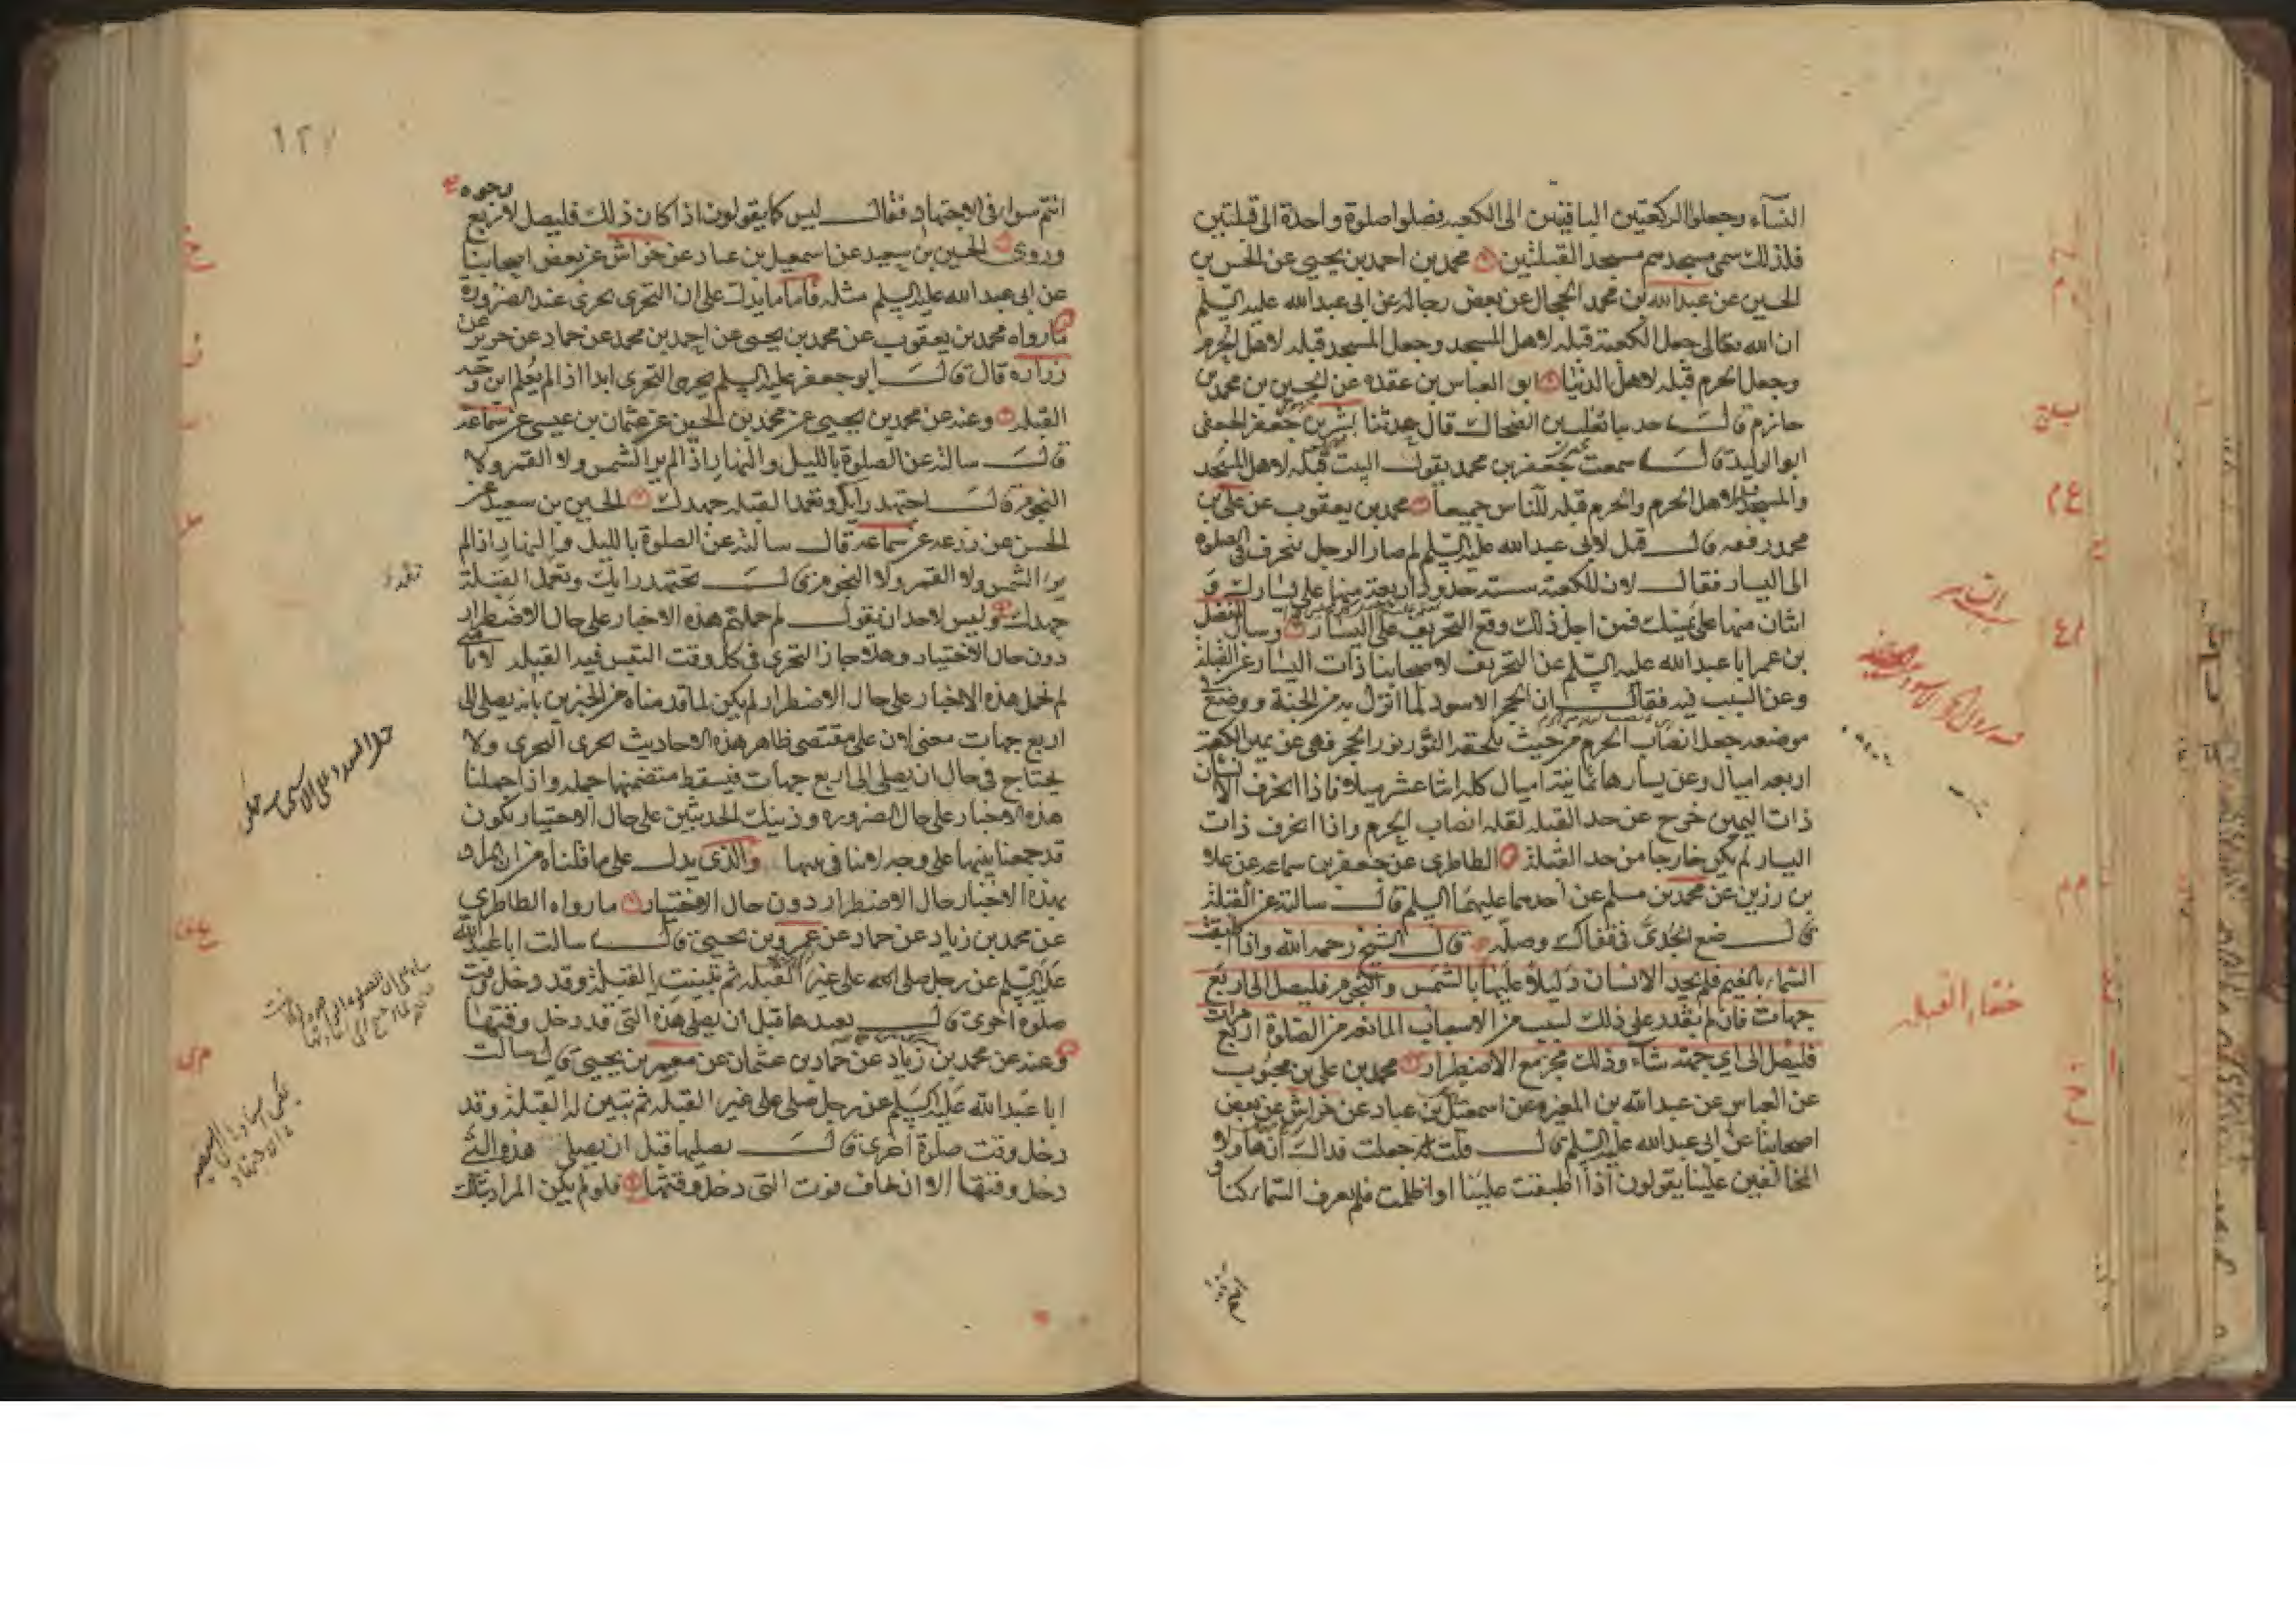 النسآء وجعلوا الركعتين الباقيتين الى الكعبه فصلوا صلوة واحدة الى قبلتين
فلذلك سمى مسجدهم مسجد القبلتين محمد بن احمد بن يحيى عن الحسن بن
الحسين عن عبدالله بن محمد الحجال عن بعض رجاله عن ابى عبدالله عليه السلم
ان الله تعالى جعل الكعبة قبله لاهل المسجد وجعل المسجد قبله لاهل الحرم
وجعل الحرم قبله لاهل الدنيا ابو العباس بن عقده عن الحسين بن محمد بن
حازم قال حدثنا تغلب بن الضحاك قال حدثنا بشر بن جعفر الجعفى
ابو الوليد قال سمعت جعفر بن محمد يقول البيت قبله لاهل المسجد
والمسجد قبلة لاهل الحرم والحرم قبله للناس جميعا محمد بن يعقوب عن على بن
محمد رفعه قال قيل لابى عبد الله عليه السلم لم صار الرجل ينحرف فى الصلوة
الى اليسار فقال لان للكعبة ستة حدود اربعة منها على يسارك و
اثنان منها على يمينك فمن اجل ذلك وقع التحريف على اليسار وسال المفضل
بن عمر ابا عبد الله عليه السلم عن التحريف لاصحابنا ذات اليسار عن القبلة
وعن السبب فيه فقال ان الحجر الاسود لما انزل به من الجنة ووضع فى
موضعه جعل انصاب الحرم من حيث يلحقه النور نور الحجر فهى عن يمين الكعبة
اربعه اميال وعن يسارها ثمانية اميال كله اثنا عشر ميلا فاذا انحرف الانسان
ذات اليمين خرج عن حد القبله لقله انصاب الحرم واذا انحرف ذات
اليسار لم يكن خارجا من حد القبلة الطاطرى عن جعفر بن سماعه عن علا
بن رزين عن محمد بن مسلم عن احدهما عليهما السلم قال سالته عن القبلة
قال ضع الجدى فى قفاك وصله قال الشيخ رحمه الله واذا اطبقت
السماء بالغيم فلم يجد الانسان دليلا عليها بالشمس والنجوم فليصل الى اربع
جهات فان لم يقدر على ذلك لسبب من الاسباب المانعة من الصلوة اربع مرات
فليصل الى اى جهة شاء وذلك مجز مع الاضطرار محمد بن على بن محبوب
عن العباس عن عبد الله بن المغيره عن اسمعيل بن عباد عن خراش عن بعض
اصحابنا عن ابى عبدالله عليه السلم قال قلت له جعلت فداك ان هاولا
المخالفين علينا يقولون اذا اطبقت علينا او اظلمت فلم يعرف السماء كنا و
خفاء القبله
١٢٧
انتم سواء فى الاجتهاد فقال ليس كما يقولون اذا كان ذلك فليصل لاربع
وجوه
وروى الحسين بن سعيد عن اسمعيل بن عباد عن خراش عن بعض اصحابنا
عن ابى عبد الله عليه السلم مثله فاما ما يدل على ان التحرى يجزى عند الضرورة
ما رواه محمد بن يعقوب عن محمد بن يحيى عن احمد بن محمد عن حماد عن حريز عن
زراره قال قال ابو جعفر عليه السلم يجزى التحرى ابدا اذا لم يعلم اين وجه
القبله وعنه عن محمد بن يحيى عن محمد بن الحسين عن عثمان بن عيسى عن سماعه
قال سالته عن الصلوة بالليل والنهار اذا لم ير الشمس ولا القمر ولا
النجوم قال اجتهد رايك وتعمد القبله جهدك الحسين بن سعيد عن
الحسن عن زرعه عن سماعه قال سالته عن الصلوة بالليل والنهار اذا لم
ير الشمس ولا القمر ولا النجوم قال تجتهد رايك وتعمد القبلة
جهدك وليس لاحد ان يقول لم حملتم هذه الاخبار على حال الاضطرار
دون حال الاختيار وهلا جاز التحرى فى كل وقت التبس فيه القبله لانا متى
لم نحمل هذه الاخبار على حال الاضطرار لم يكن لما قدمناه من الخبرين بانه يصلى الى
اربع جهات معنى لان على مقتضى ظاهر هذه الاحاديث يجزى التحرى ولا
يحتاج فى حال ان يصلى الى اربع جهات فيسقط متضمنها جمله واذا حملنا
هذه الاخبار على حال الضروره وذينك الحديثين على حال الاختيار نكون
قد جمعنا بينهما على وجه لا تنافى بينهما والذى يدل على ما قلناه من ان المراد
بهذه الاخبار حال الاضطرار دون حال الاختيار ما رواه الطاطرى
عن محمد بن زياد عن حماد عن عمرو بن يحيى قال سالت ابا عبد الله
عليه السلم عن رجل صلى على غير القبله ثم تبينت القبلة وقد دخل وقت
صلوة اخرى قال يعيدها قبل ان يصلى هذه التى قد دخل وقتها
وعنه عن محمد بن زياد عن حماد بن عثمان عن معمر بن يحيى قال سالت
ابا عبدالله عليه السلم عن رجل صلى على غير القبله ثم تبين له القبلة وقد
دخل وقت صلوة اخرى قال يصليها قبل ان يصلى هذه التى
دخل وقتها الا ان يخاف فوت التى دخل وقتها فلو لم يكن المراد بتلك